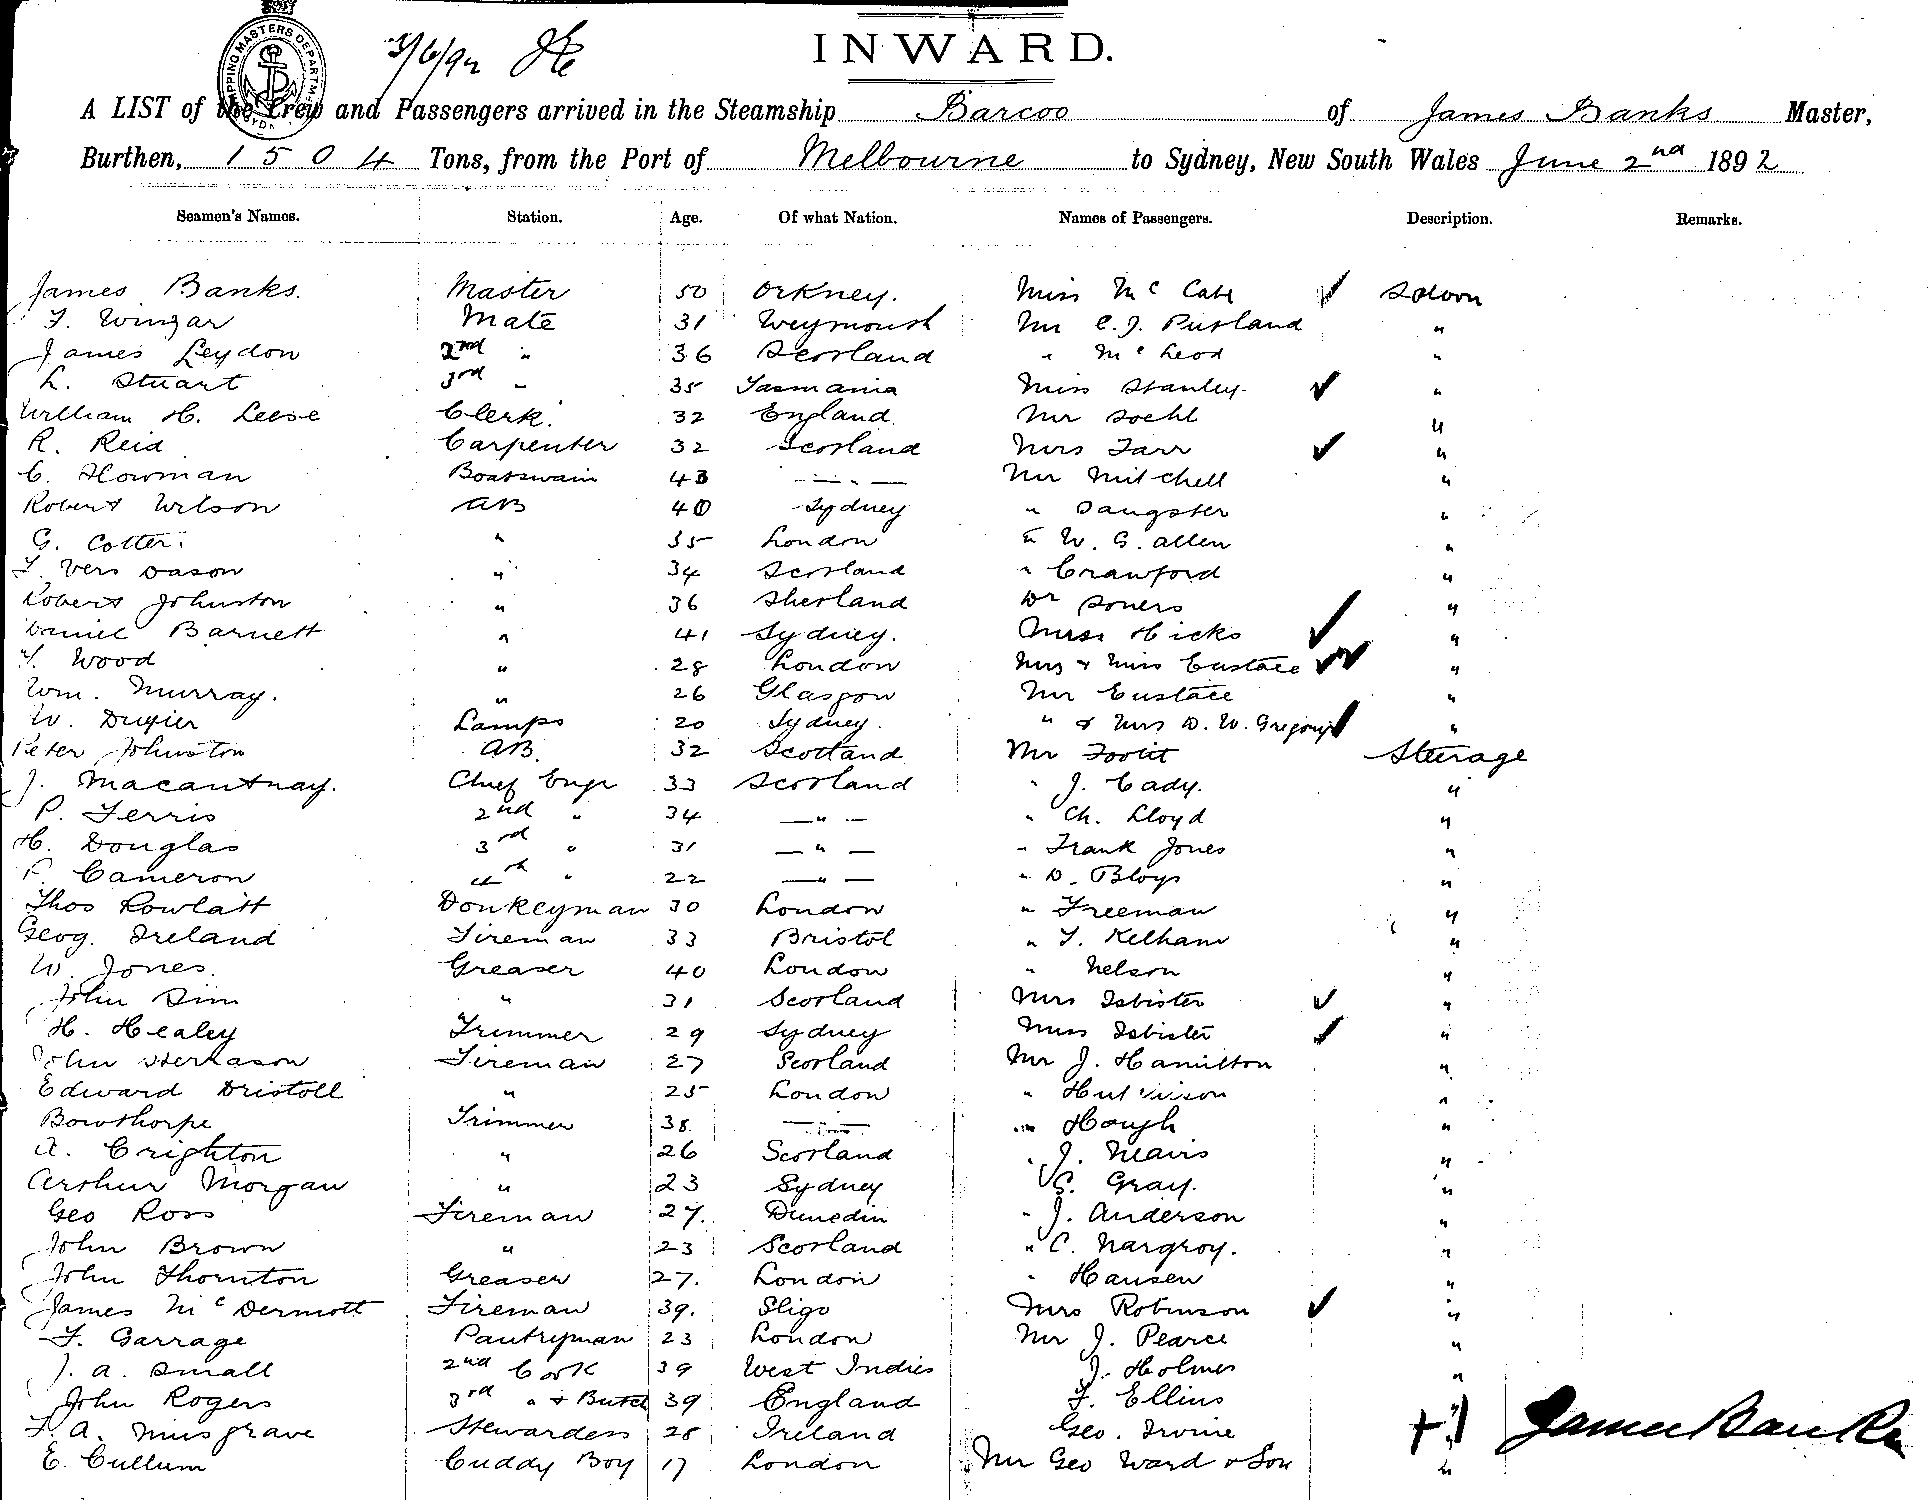 SHIPPING MASTERS DEPARTM
SYDN
3/6/92
INWARD.
A LIST of the Crew and Passengers arrived in the Steamship Barcoo of James Banks Master,
Burthen, 1504 Tons, from the Port of Melbourne to Sydney, New South Wales June 2nd 1892
Seamen's Names. Station. Age. Of what Nation. Names of Passengers. Description. Remarks.
James Banks. Master 50 Orkney. Miss Mc Cabe ✓ Saloon
Mate 31 Weymouth Mr C. J. Pusland "
James Leydon 2nd " 36 Scotland " Mc Leod "
L. Stuart 3rd " 35 Tasmania Miss Stanley ✓ "
William H. Leese Clerk. 32 England Mr "
R. Reid Carpenter 32 Scotland Mrs Farr ✓ "
C. Howman Boatswain 43 — " — Mr Mitchell "
Robert Wilson AB 40 Sydney " Sangster "
G. Cotter " 35 London " W. G. Allen "
" 34 Scotland " Crawford "
Robert Johnston " 36 Shetland Dr "
Daniel Barnett " 41 Sydney. Hicks ✓ "
Wood " 28 London Mrs & Miss Eustace ✓✓ "
Wm. Murray. " 26 Glasgow Mr Eustace "
W. Lamps 20 Sydney. " & Mrs D. W. Gregory ✓ "
Peter Johnston AB. 32 Scotland Mr Steerage
J. Chief Engr 33 Scotland " J. Cady. "
P. Ferris 2nd " 34 — " — " Ch. Lloyd "
H. Douglas 3rd " 31 — " — " Frank Jones "
P. Cameron 4th " 22 — " — " D. Bloys "
Thos Rowlatt Donkeyman 30 London " Freeman "
Geog. Ireland Fireman 33 Bristol " T. Kelham "
W. Jones. Greaser 40 London " Nelson "
John Sim " 31 Scotland Mrs Isbister ✓ "
H. Healey Trimmer 29 Sydney Miss Isbister ✓ "
John Fireman 27 Scotland Mr J. Hamilton "
Edward Driscoll " 25 London " "
Bowthorpe Trimmer 38 — " — " Hough "
A. Crighton " 26 Scotland " J. "
Arthur Morgan " 23 Sydney Gray. "
Geo Ross Fireman 27. Dunedin " J. Anderson "
John Brown " 23 Scotland " C. Nargroy. "
John Thornton Greaser 27. London " Hansen "
James Mc Dermott Fireman 39. Sligo Mrs Robinson ✓ "
F. Garrage Pantryman 23 London Mr J. Pearce "
J. A. Small 2nd Cook 39 West Indies J. Holmes "
John Rogers 3rd " & Butch 39 England F. Ellins "
F. A. Musgrave Stewardess 28 Ireland Geo. Irvine " James Banks
E. Cullum Cuddy Boy 17 London Mr Geo Ward & Son "